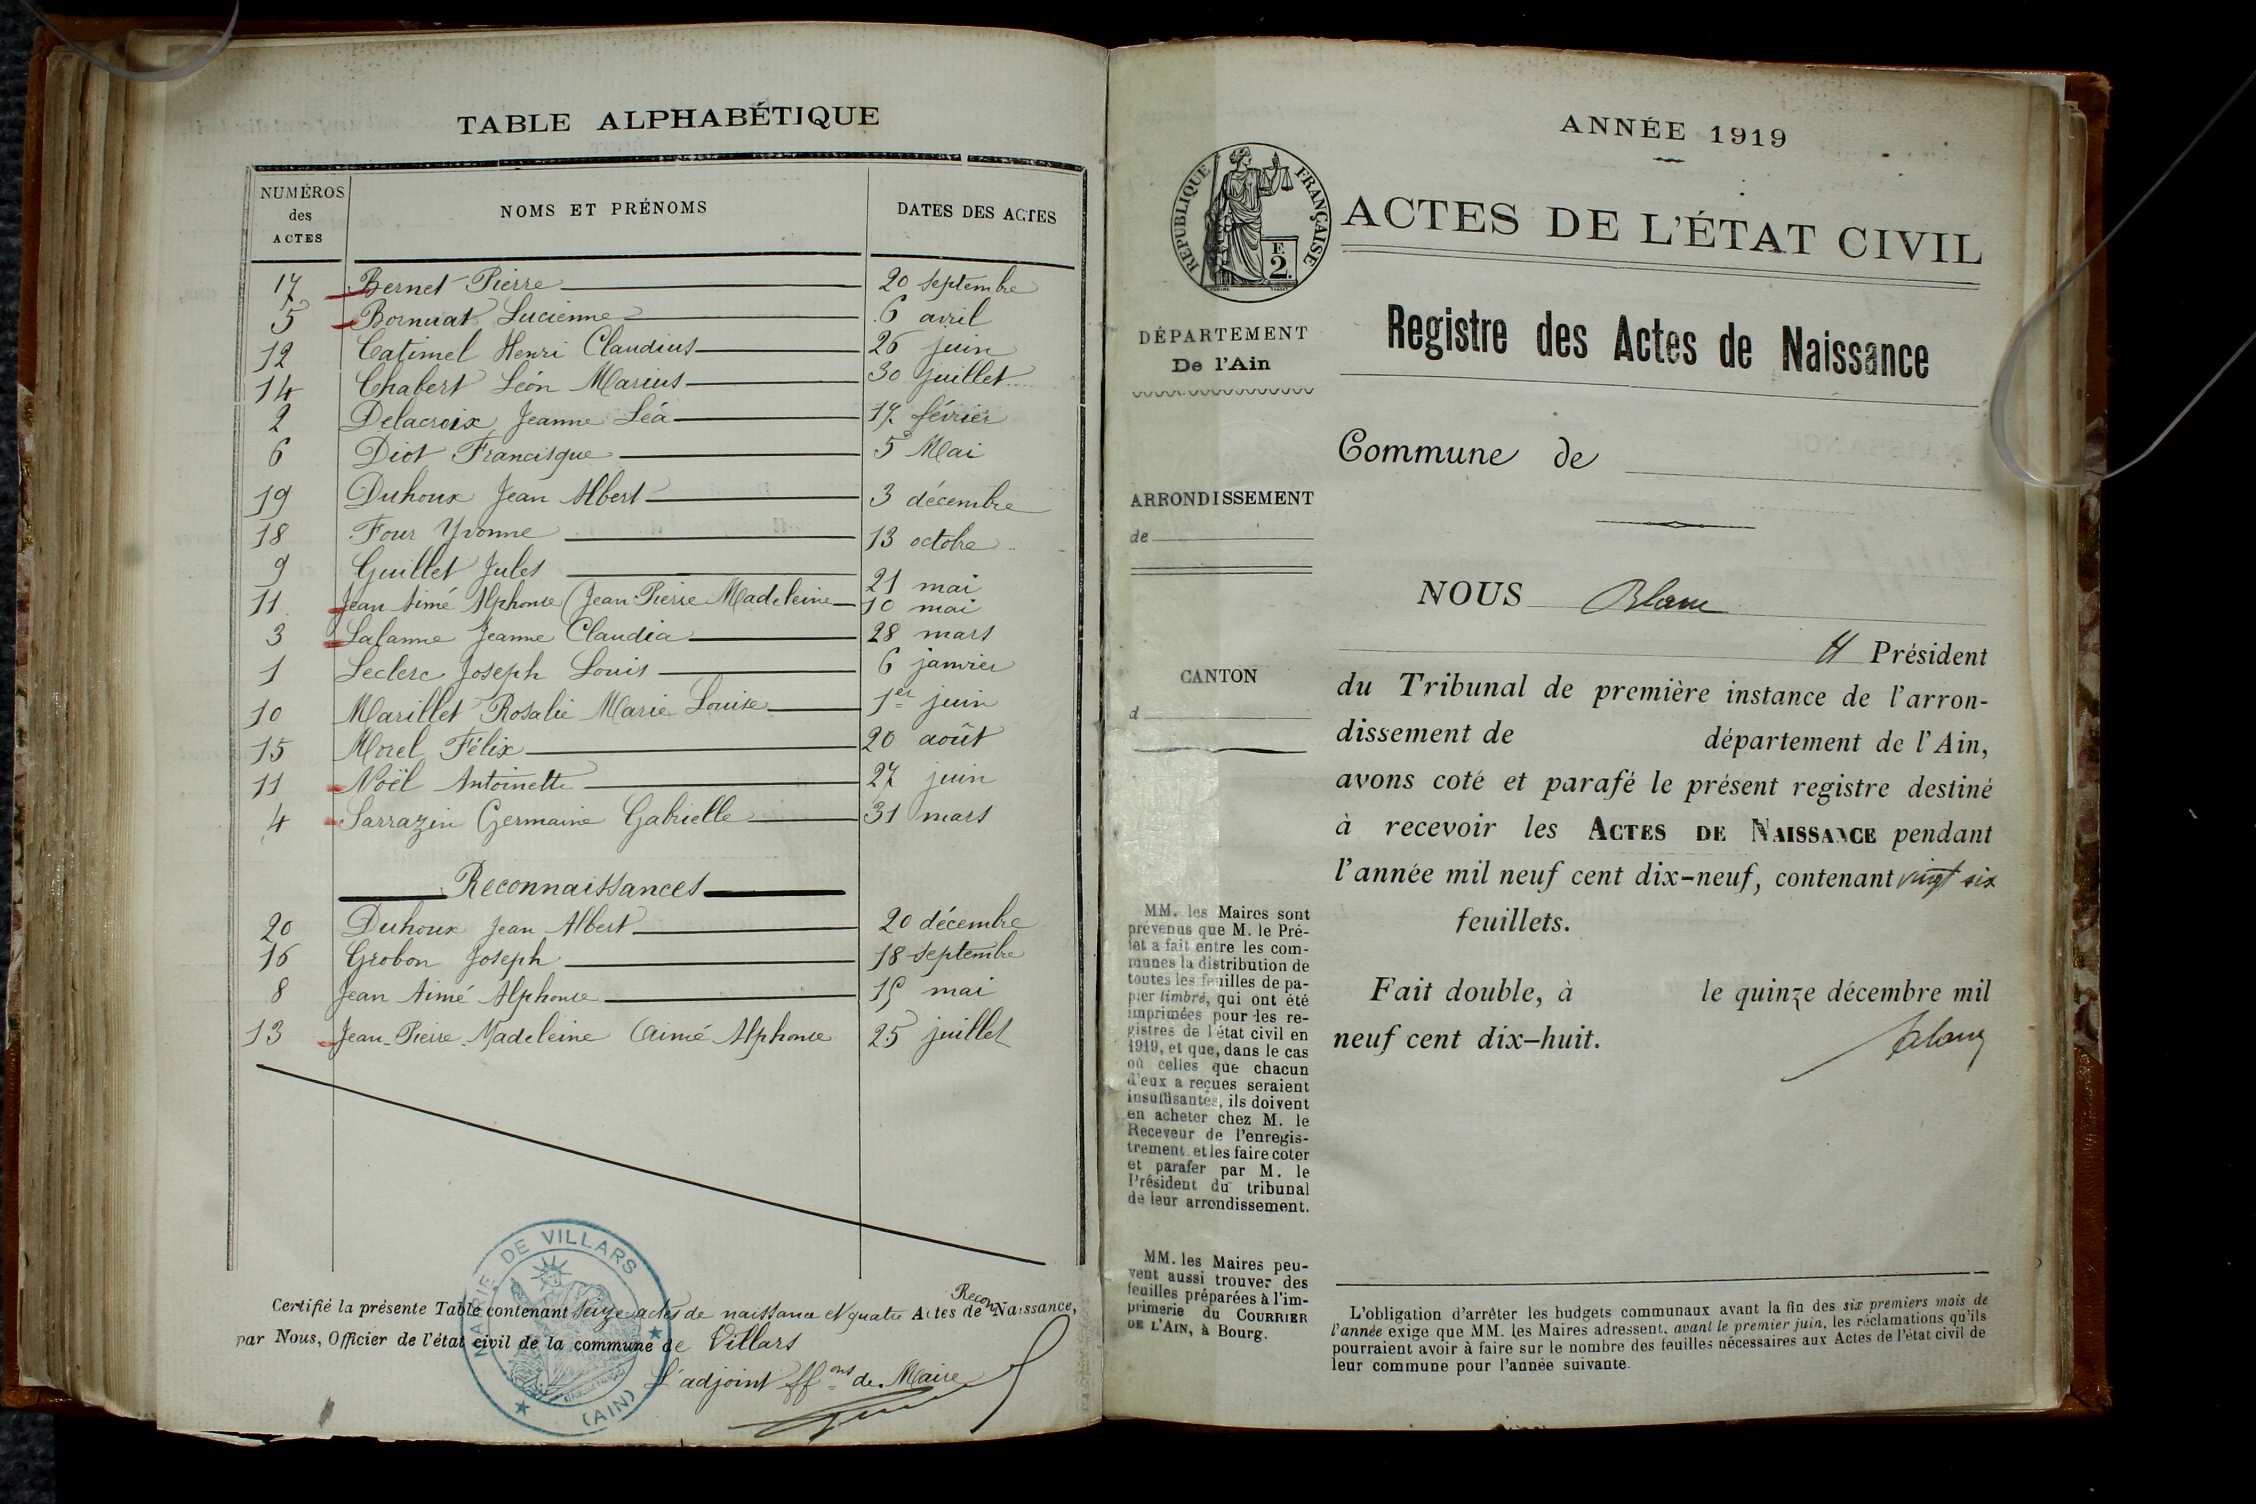 TABLE ALPHABÉTIQUE
NUMÉROS des ACTES
NOMS ET PRÉNOMS
DATES DES ACTES
17 Bernet Pierre 20 septembre
5 Bornuat Lucienne 6 avril
12 Catimel Henri Claudius 26 juin
14 Chabert Léon Marius 30 juillet
2 Delacroix Jeanne Léa 17 février
6 Diot Francisque 5 Mai
19 Duhoux Jean Albert 3 décembre
18 Four Yvonne 13 octobre
9 Guillet Jules 21 mai
11 Jean Aimé Alphonse (Jean-Pierre Madeleine 10 mai
3 Lalanne Jeanne Claudia 28 mars
1 Leclerc Joseph Louis 6 janvier
10 Marillet Rosalie Marie Louise 1er juin
15 Morel Félix 20 août
11 Noël Antoinette 27 juin
4 Sarrazin Germaine Gabrielle 31 mars
Reconnaissances
20 Duhoux Jean Albert 20 décembre
16 Grobon Joseph 18 septembre
8 Jean Aimé Alphonse 15 mai
13 Jean-Pierre-Madeleine (Aimé Alphonse 25 juillet
Certifié la présente Table contenant seize actes de naissance et quatre Actes de Recon Naissance,
par Nous, Officier de l'état civil de la commune de Villars
L'adjoint ff ons de Maire
MAIRIE DE VILLARS
(AIN)
ANNÉE 1919
RÉPUBLIQUE FRANÇAISE
F.
2.
ACTES DE L'ÉTAT CIVIL
Registre des Actes de Naissance
DÉPARTEMENT
De l'Ain
Commune de
ARRONDISSEMENT
de
NOUS Blanc
Président
CANTON
d
du Tribunal de première instance de l'arron-
dissement de département de l'Ain,
avons coté et parafé le présent registre destiné
à recevoir les ACTES DE NAISSANCE pendant
l'année mil neuf cent dix-neuf, contenant vingt six
feuillets.
Fait double, à le quinze décembre mil
neuf cent dix-huit.
Blanc
MM. les Maires sont
prévenus que M. le Pré-
fet a fait entre les com-
munes la distribution de
toutes les feuilles de pa-
pier timbré, qui ont été
imprimées pour les re-
gistres de l'état civil en
1919, et que, dans le cas
où celles que chacun
d'eux a reçues seraient
insuffisantes, ils doivent
en acheter chez M. le
Receveur de l'enregis-
trement et les faire coter
et parafer par M. le
Président du tribunal
de leur arrondissement.
MM. les Maires peu-
vent aussi trouver des
feuilles préparées à l'im-
primerie du COURRIER
DE L'AIN, à Bourg.
L'obligation d'arrêter les budgets communaux avant la fin des six premiers mois de
l'année exige que MM. les Maires adressent, avant le premier juin, les réclamations qu'ils
pourraient avoir à faire sur le nombre des feuilles nécessaires aux Actes de l'état civil de
leur commune pour l'année suivante.